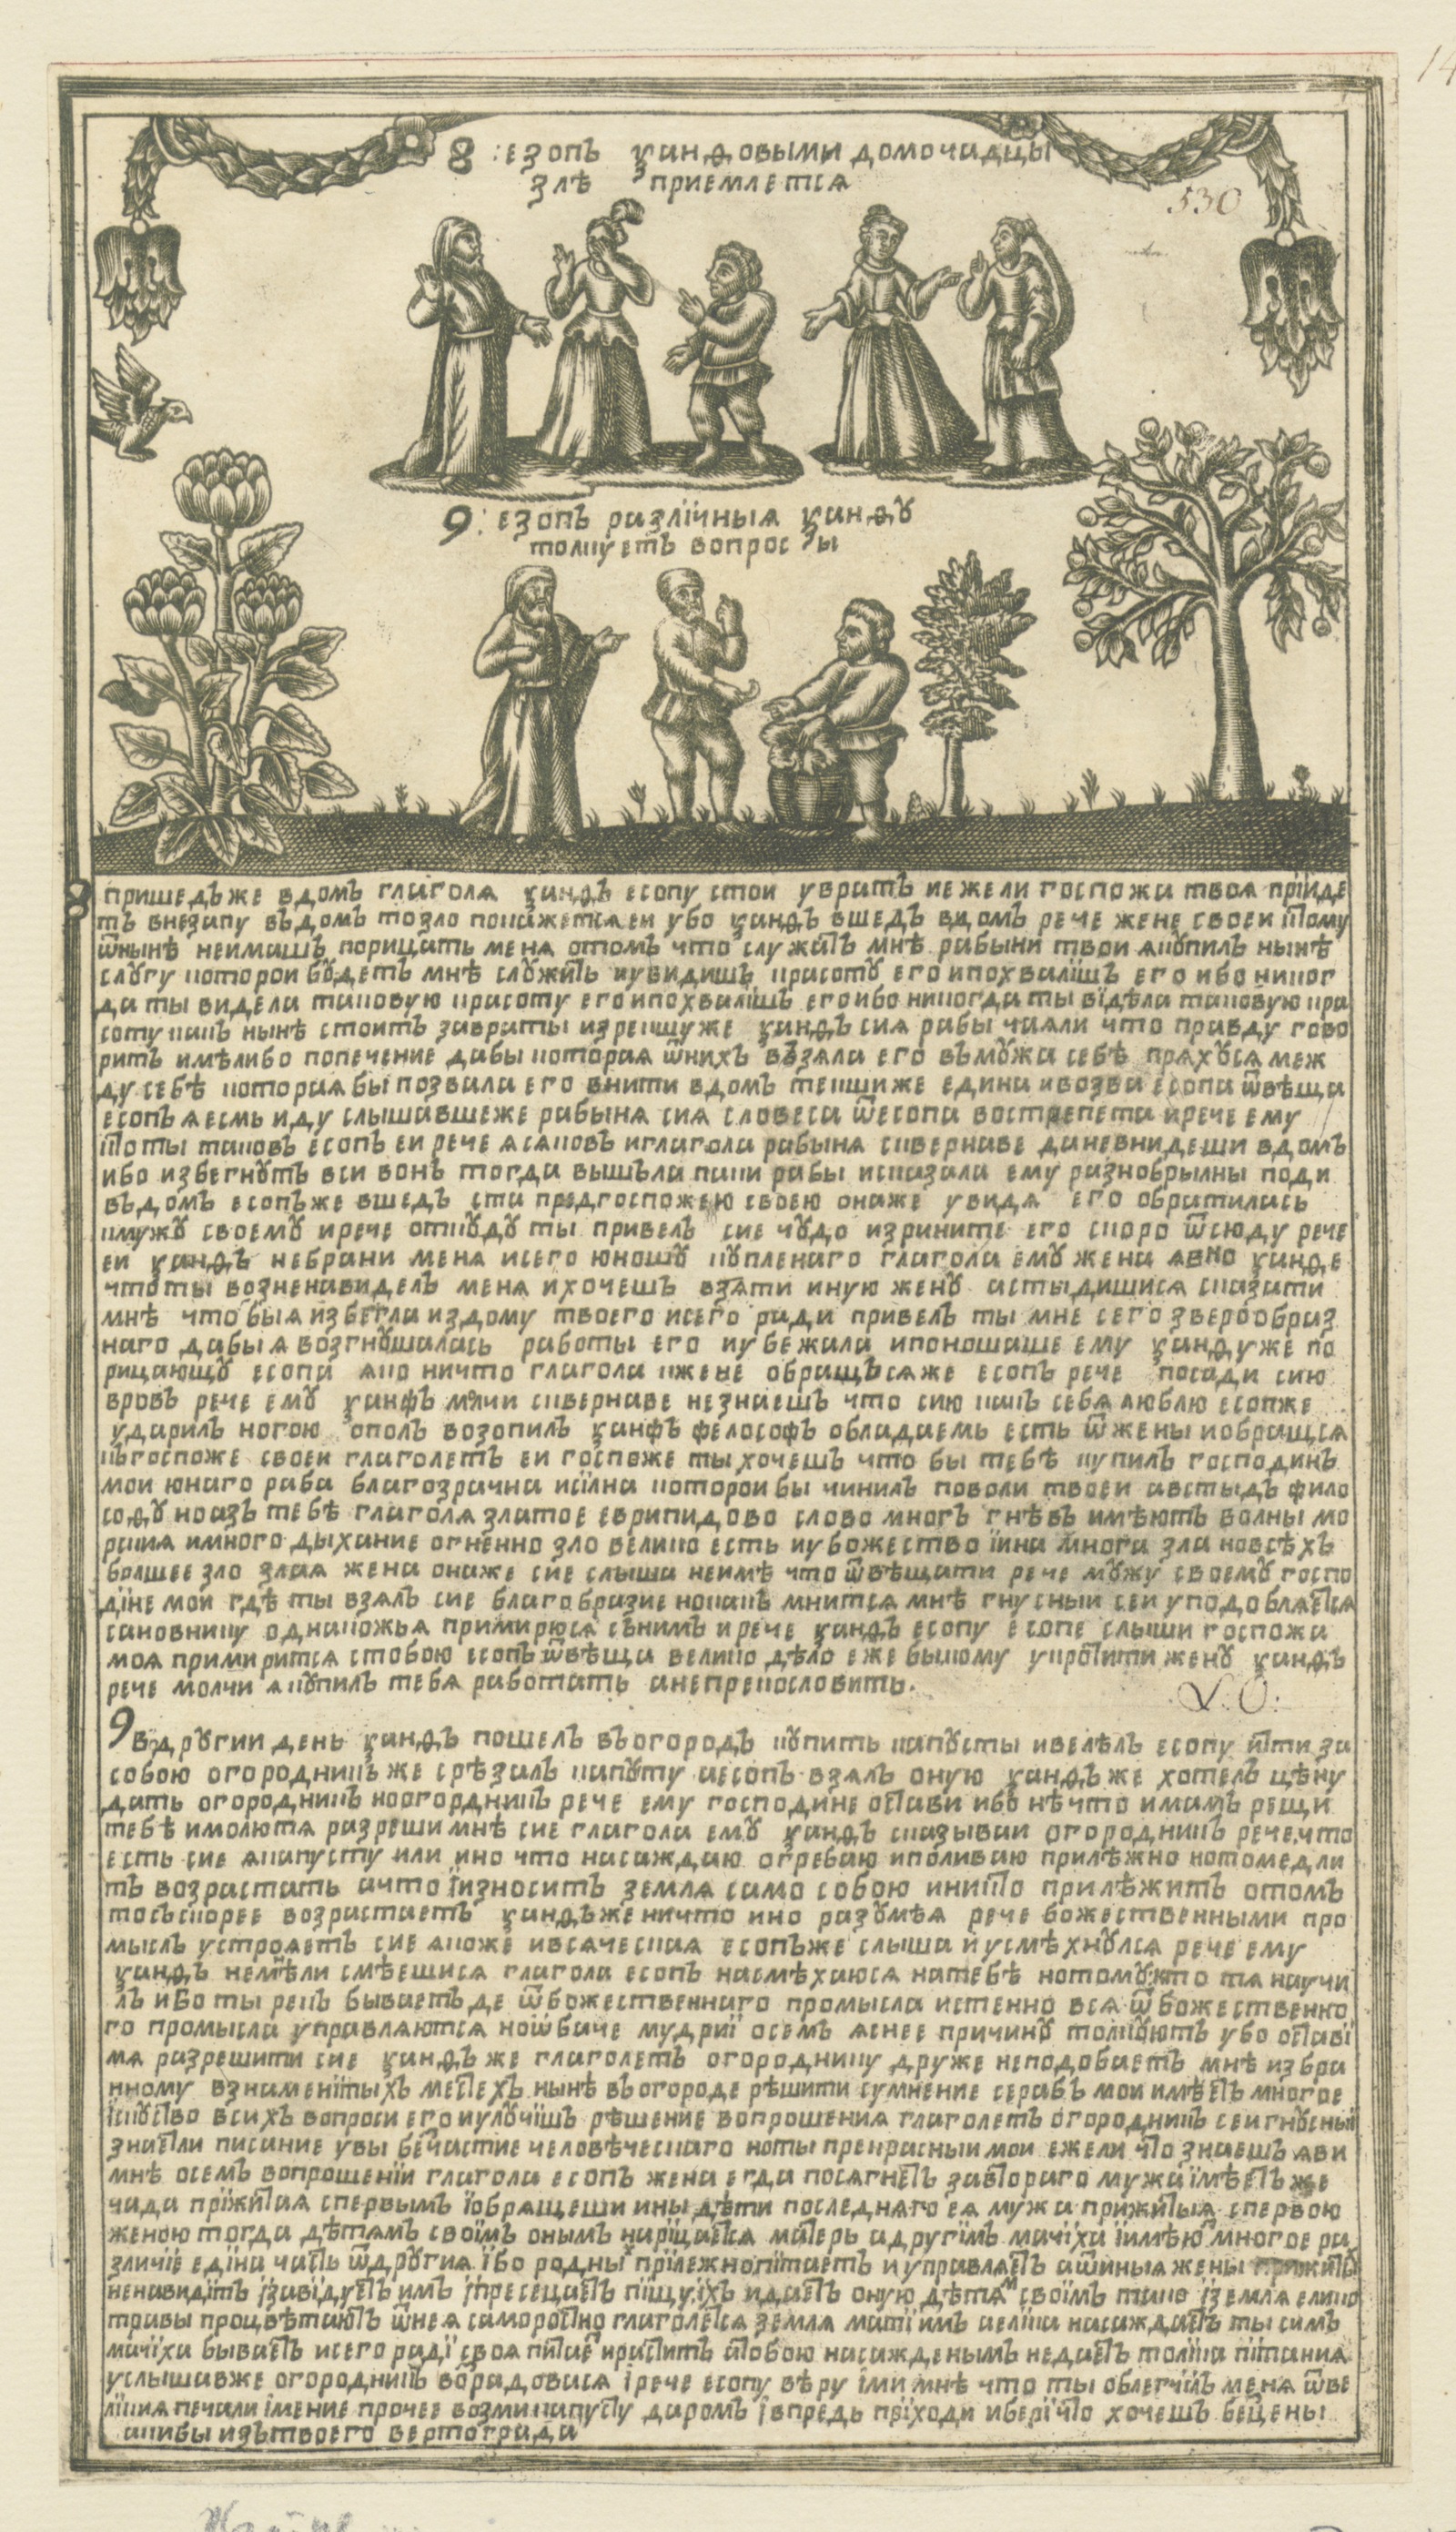 8 : езопъ ѯанѳовыми домочадцы
злѣ приемлется
530
9 : езопъ разлїчныя ѯанѳꙋ
толкꙋетъ вопросы
8 пришедъже вдомъ глаголя ѯанѳъ есопу стои увратъ нежели госпожа твоя прїиде
тъ внезапу въдомъ тозло покажетсяеи убо ѯанѳъ вшедъ вдомъ рече жене своеи тому
ѿнынѣ неимашъ порицать меня отомъ что служатъ мнѣ рабыни твои якꙋпилъ нынѣ
слугу которои бꙋдетъ мнѣ слꙋжить иувидишъ красотꙋ его ипохвалїшъ его ибо никог
да ты видела таковую красоту его ипохвалїшъ егоибо никогда ты вїдѣла таковꙋю кра
соту какъ нынѣ стоитъ завраты изрекшуже ѯанѳъ сия рабы чаяли что правду гово
ритъ имѣлибо попечение дабы которая ѿнихъ възяла его вьмꙋжа себѣ пряхꙋся меж
ду себѣ котораябы позвала его внити вдомъ текшиже едина ивозва есопа ѿвѣща
есопъ яесмь иду слышавшеже рабыня сия словеса ѿесопа вострепета ирече ему
тоты таковъ есопъ еи рече ясяковъ иглагола рабыня скверънаве даневнидеши вдомъ
ибо избегнꙋтъ вси вонъ тогда вышъла паки рабы исказала ему разнобрылны поди
въдомъ есопъже вшедъ ста предгоспожею своею онаже увидя его обратилась
кмужꙋ своемꙋ ирече откꙋдꙋ ты привелъ сие чꙋдо изрините его скоро ѿсюду рече
еи ѯанѳъ небрани меня исего юношꙋ кꙋпленаго глагола емꙋ жена явно ѯанѳе
чтоты возненавидель меня ихочешъ взяти иную женꙋ астыдишися сказати
мнѣ чтобыя избегла издому твоего исего ради привелъ ты мне сего зверообраз
наго дабыя возгнꙋшалась работы его иубежала ипоношаше ему ѯанѳуже по
рицающꙋ есопа яко ничто глагола кжене обращъсяже есопъ рече посади сию
вровъ рече емꙋ ѯанфъ мячи сквернаве незнаешъ что сию какъ себя люблю есопже
ударилъ ногою ополъ возопилъ ѯанфъ фелософъ обладаемь есть ѿжены иобращся
къгоспоже своеи глаголетъ еи госпоже ты хочешъ что бы тебѣ купилъ господинъ
мои юнаго раба благозрачна исїлна которои бы чинилъ поволи твоеи австыдъ фило
соѳꙋ ноазъ тебѣ глаголя златое еврипидово слово многъ гнѣвъ имѣютъ волны мо
рския имного дыхание огненно зло велико есть иубожество їина многа зла новсѣхъ
болшее зло злая жена онаже сие слыша неимѣ что ѿвѣщати рече мꙋжу своемꙋ госпо
дїне мои гдѣ ты взялъ сие благобразие нокакъ мнится мнѣ гнусныи сеи уподобляется
сановнику однакожья примирюся сънимъ ирече ѯанѳъ есопу есопе слыши госпожа
моя примирится стобою есопъ ѿвѣща велико дѣло ежебышому укротити женꙋ ѯанѳъ
рече молчи якꙋпилъ тебя работать анепрекословить.
9 вдрꙋгии день ѯанѳъ пошелъ въогородъ кꙋпить капꙋсты ивелѣлъ есопу итти за
собою огородникъже срѣзалъ капꙋту аесопъ взялъ оную ѯанѳъже хотелъ цѣну
дать огородникъ ноогордникъ рече ему господине остави ибо нѣчто имамъ рещи
тебѣ имолютя разреши мнѣ сие глагола емꙋ ѯанѳъ сказываи огородникъ рече что
есть сие якапусту или ино что насаждаю огребаю иполиваю прилѣжно нотомедли
тъ возрастать ачто їизноситъ земля само собою иникто прилѣжитъ отомъ
тосъскорее возрастаетъ ѯанѳъже ничто ино разꙋмѣя рече божественными про
мыслъ устрояетъ сие якоже ивсяческая есопъже слыша иусмѣхнꙋлся рече ему
ѯанѳъ немнѣли смѣешися глагола есопъ насмѣхаюся натебѣ нотомꙋкто тя научи
лъ ибо ты рекъ бываетъде ѿбожественнаго промысла истенно вся ѿбожественно
го промысла управляются ноѡбаче мудрїи осемъ яснее причинꙋ толкꙋютъ убо остави
мя разрешити сие ѯанѳъже глаголетъ огороднику друже неподобаетъ мнѣ избра
нному взнаменїтыхъ местехъ нынѣ въогороде рѣшити сумнение серабъ мои имѣетъ многое
їскꙋство всихъ вопроси его иулꙋчїшъ рѣшение вопрошения глаголетъ огородникъ сеигнꙋсныї
знаетли писание увы безчастие человѣческаго ноты прекрасныи мои ежели что знаешъ яви
мнѣ осемъ вопрошенїи глагола есопъ жена егда посягнетъ завтораго мужа їмѣетъ же
чада прїжитая спервымъ їобрящеши ины дѣти последняго ея мужа прижитыя спервою
женою тогда дѣтямъ своїмъ онымъ нарїцается матерь адругїмъ мачїха їимѣютъ многое ра
зличїе едїна часть ѿдрꙋгия їбо родныхъ прїлежнопїтаетъ иуправляетъ аѿиныя жены прижитых
ненавидїтъ їзавїдуетъимъ їпресецаетъ пїщу їхъ идаетъ оную дѣтямъ своїмъ тако їземля елико
травы процвѣтаютъ ѿнея саморостно глаголется земля матїимъ аелїка насаждаетъ ты симъ
мачїха бываетъ исего радї своя питаетъ ирастить атобою насажденымъ недаетъ толїка пїтания
услышавже огородникъ возрадовася їрече есопу вѣру їми мнѣ что ты облегчїлъ меня ѿве
лїкия печали їмение прочее возми капусту даромъ їпредь прїходи иберї что хочешъ безцены
акибы изътвоего вертограда